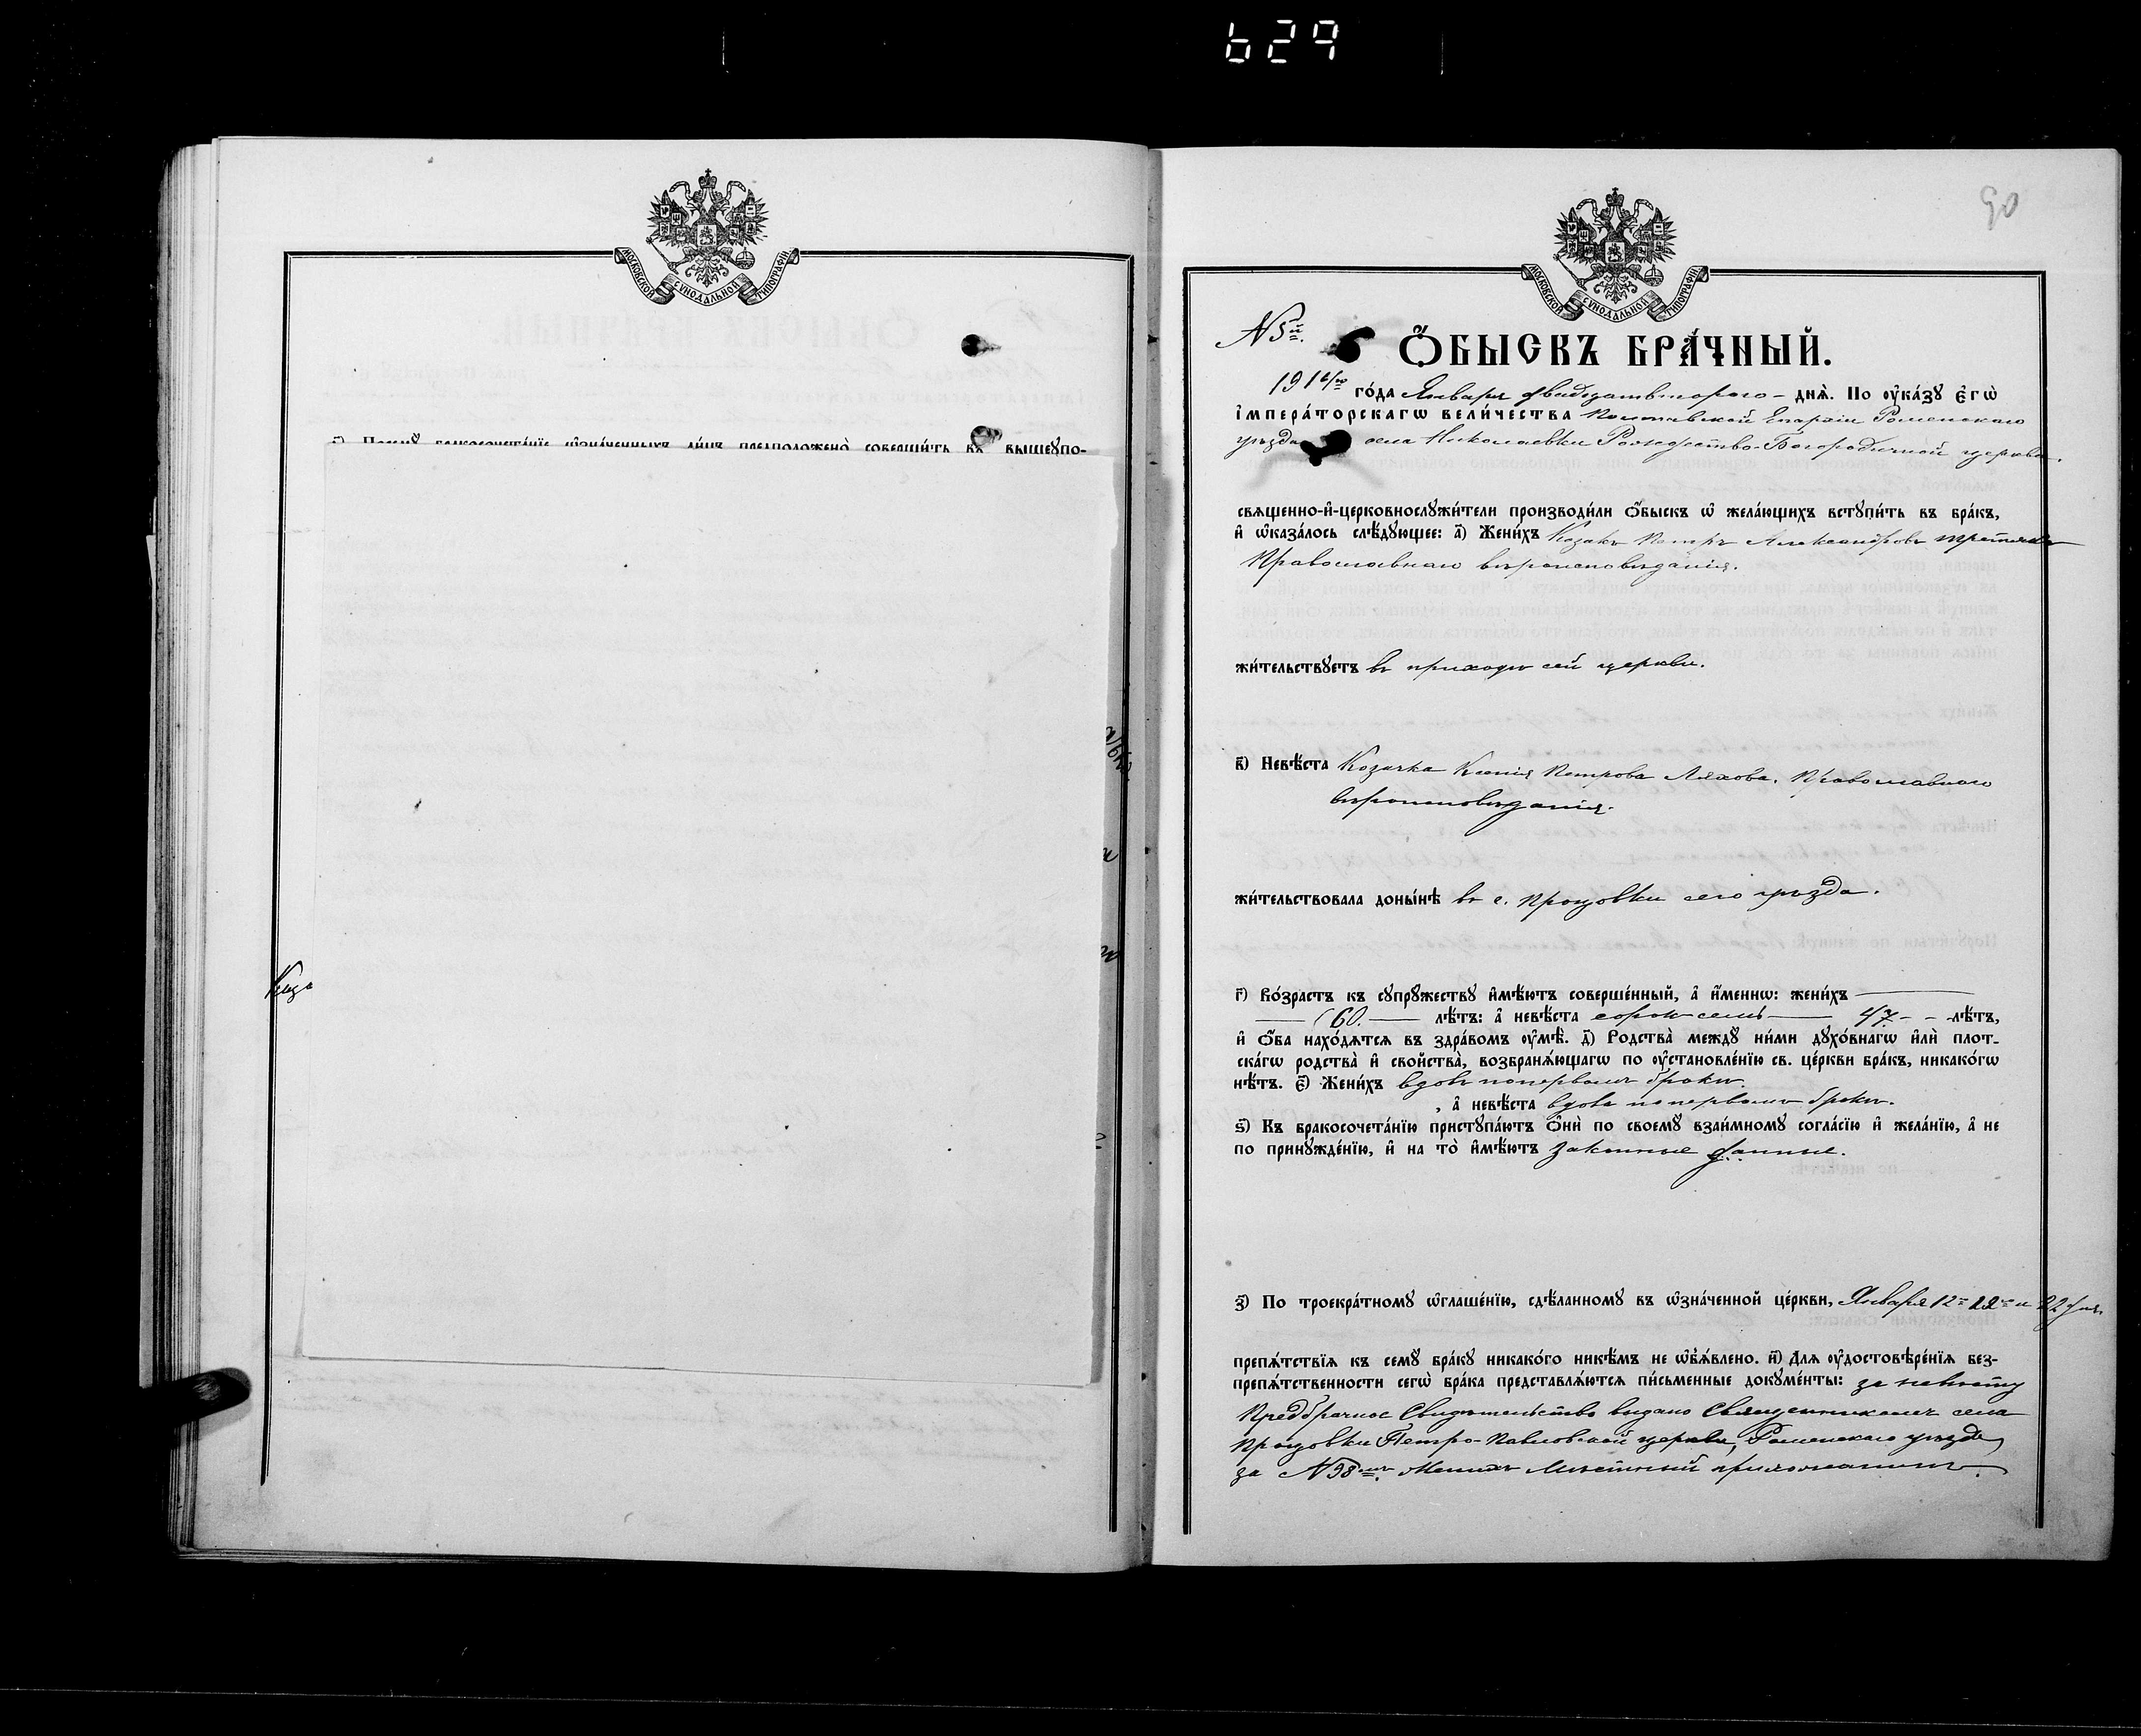 629
МОСКОВСКОЙ СѴНОДАЛЬНОЙ ТИПОГРАФІИ
бракосочета́нїе ѡ҆зна́ченныхъ ли́цъ предположено̀ соверши́ть въ вышеупо-
Коза
90
МОСКОВСКОЙ СѴНОДАЛЬНОЙ ТИПОГРАФІИ
N 5й.
Ѻ҆БЫСКЪ БРА́ЧНЫЙ.
1916го го́да Января двадцатьвторого - дня̀. По ᲂу҆ка́зꙋ є҆гѡ̀
і҆мпера́торскагѡ вели́чества Полтавской Епархіи Роменскаго
уѣзда села Николаевки Рождество-Богородичной церкви.
священно-и҆-церковнослꙋжи́тели производи́ли ѻ҆́быскъ ѡ҆ жела́ющихъ встꙋпи́ть въ бра́къ,
и҆ ѡ҆каза́лось слѣ́дꙋющее: а҃) Жени́хъ Козакъ Петръ Александровъ Третьякъ
Православнаго вѣроисповѣданія.
жи́тельствꙋетъ въ приходѣ сей церкви.
в҃) Невѣ́ста Козачка Ксенія Петрова Ляхова. Православнаго
вѣроисповѣданія.
жи́тельствовала доны́нѣ въ с. Процовки сего уѣзда.
г҃) Во́зрастъ къ сꙋпрꙋ́жествꙋ и҆мѣ́ютъ соверше́нный, а҆ и҆́меннѡ: жени́хъ
(60. лѣ́тъ: а҆ невѣ́ста сорокъ семь 47. - - лѣ́тъ,
и҆ ѻ҆́ба нахо́дятся въ здра́вомъ ᲂу҆мѣ̀. д҃) Родства̀ междꙋ̀ ни́ми дꙋхо́внагѡ и҆лѝ плот-
ска́гѡ родства̀ и҆ сво́йства̀, возбраня́ющагѡ по ᲂу҆становле́нїю св. це́ркви бра́къ, никако́гѡ
нѣ́тъ. є҃) Жени́хъ вдовъ по первомъ бракѣ.
, а҆ невѣ́ста вдова по первомъ бракѣ.
ѕ҃) Къ бракосочета́нїю пристꙋпа́ютъ ѻ҆нѝ по своемꙋ̀ взаи́мномꙋ согла́сїю и҆ жела́нїю, а҆ не
по принꙋжде́нїю, и҆ на то̀ и҆мѣ́ютъ законные данные.
з҃) По троекра́тномꙋ ѡ҆глаше́нїю, сдѣ́ланномꙋ въ ѡ҆зна́ченной це́ркви, Января 12го и 22 дня.
препя́тствїя къ семꙋ̀ бра́кꙋ никако́го никѣ́мъ не ѡ҆б̾ѧ́влено. и҃) Для ᲂу҆достовѣре́нїя без-
препя́тственности сегѡ̀ бра́ка представля́ются пи́сьменные докꙋме́нты: за невѣсту
Предбрачное Свидѣтельство выдано Священникомъ села
Процовки Петро-Павловской церкви, Роменскаго уѣзда,
за N 98мъ. Женихъ Мѣстный прихожанинъ.